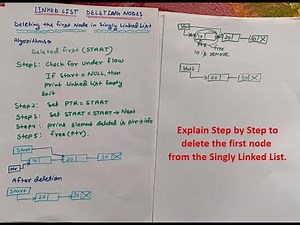 LINKED LIST DELETING NODES
Deleting the first Node in Singly Linked List
Algorithm:-
Deleted first (START)
Step1: Check for Under flow
If Start = NULL, then
print Linked List Empty
Exit
Step2: Set PTR = START
Step3: Set START = START → Next
Step4: print element deleted is ptr → info
Step5: free(ptr).
Start
ptr
10
20
30
After deletion
Start
20
30
Start
10
20
30
PTR
10 is REMOVE
Start
20
30
Explain Step by Step to
delete the first node
from the Singly Linked List.